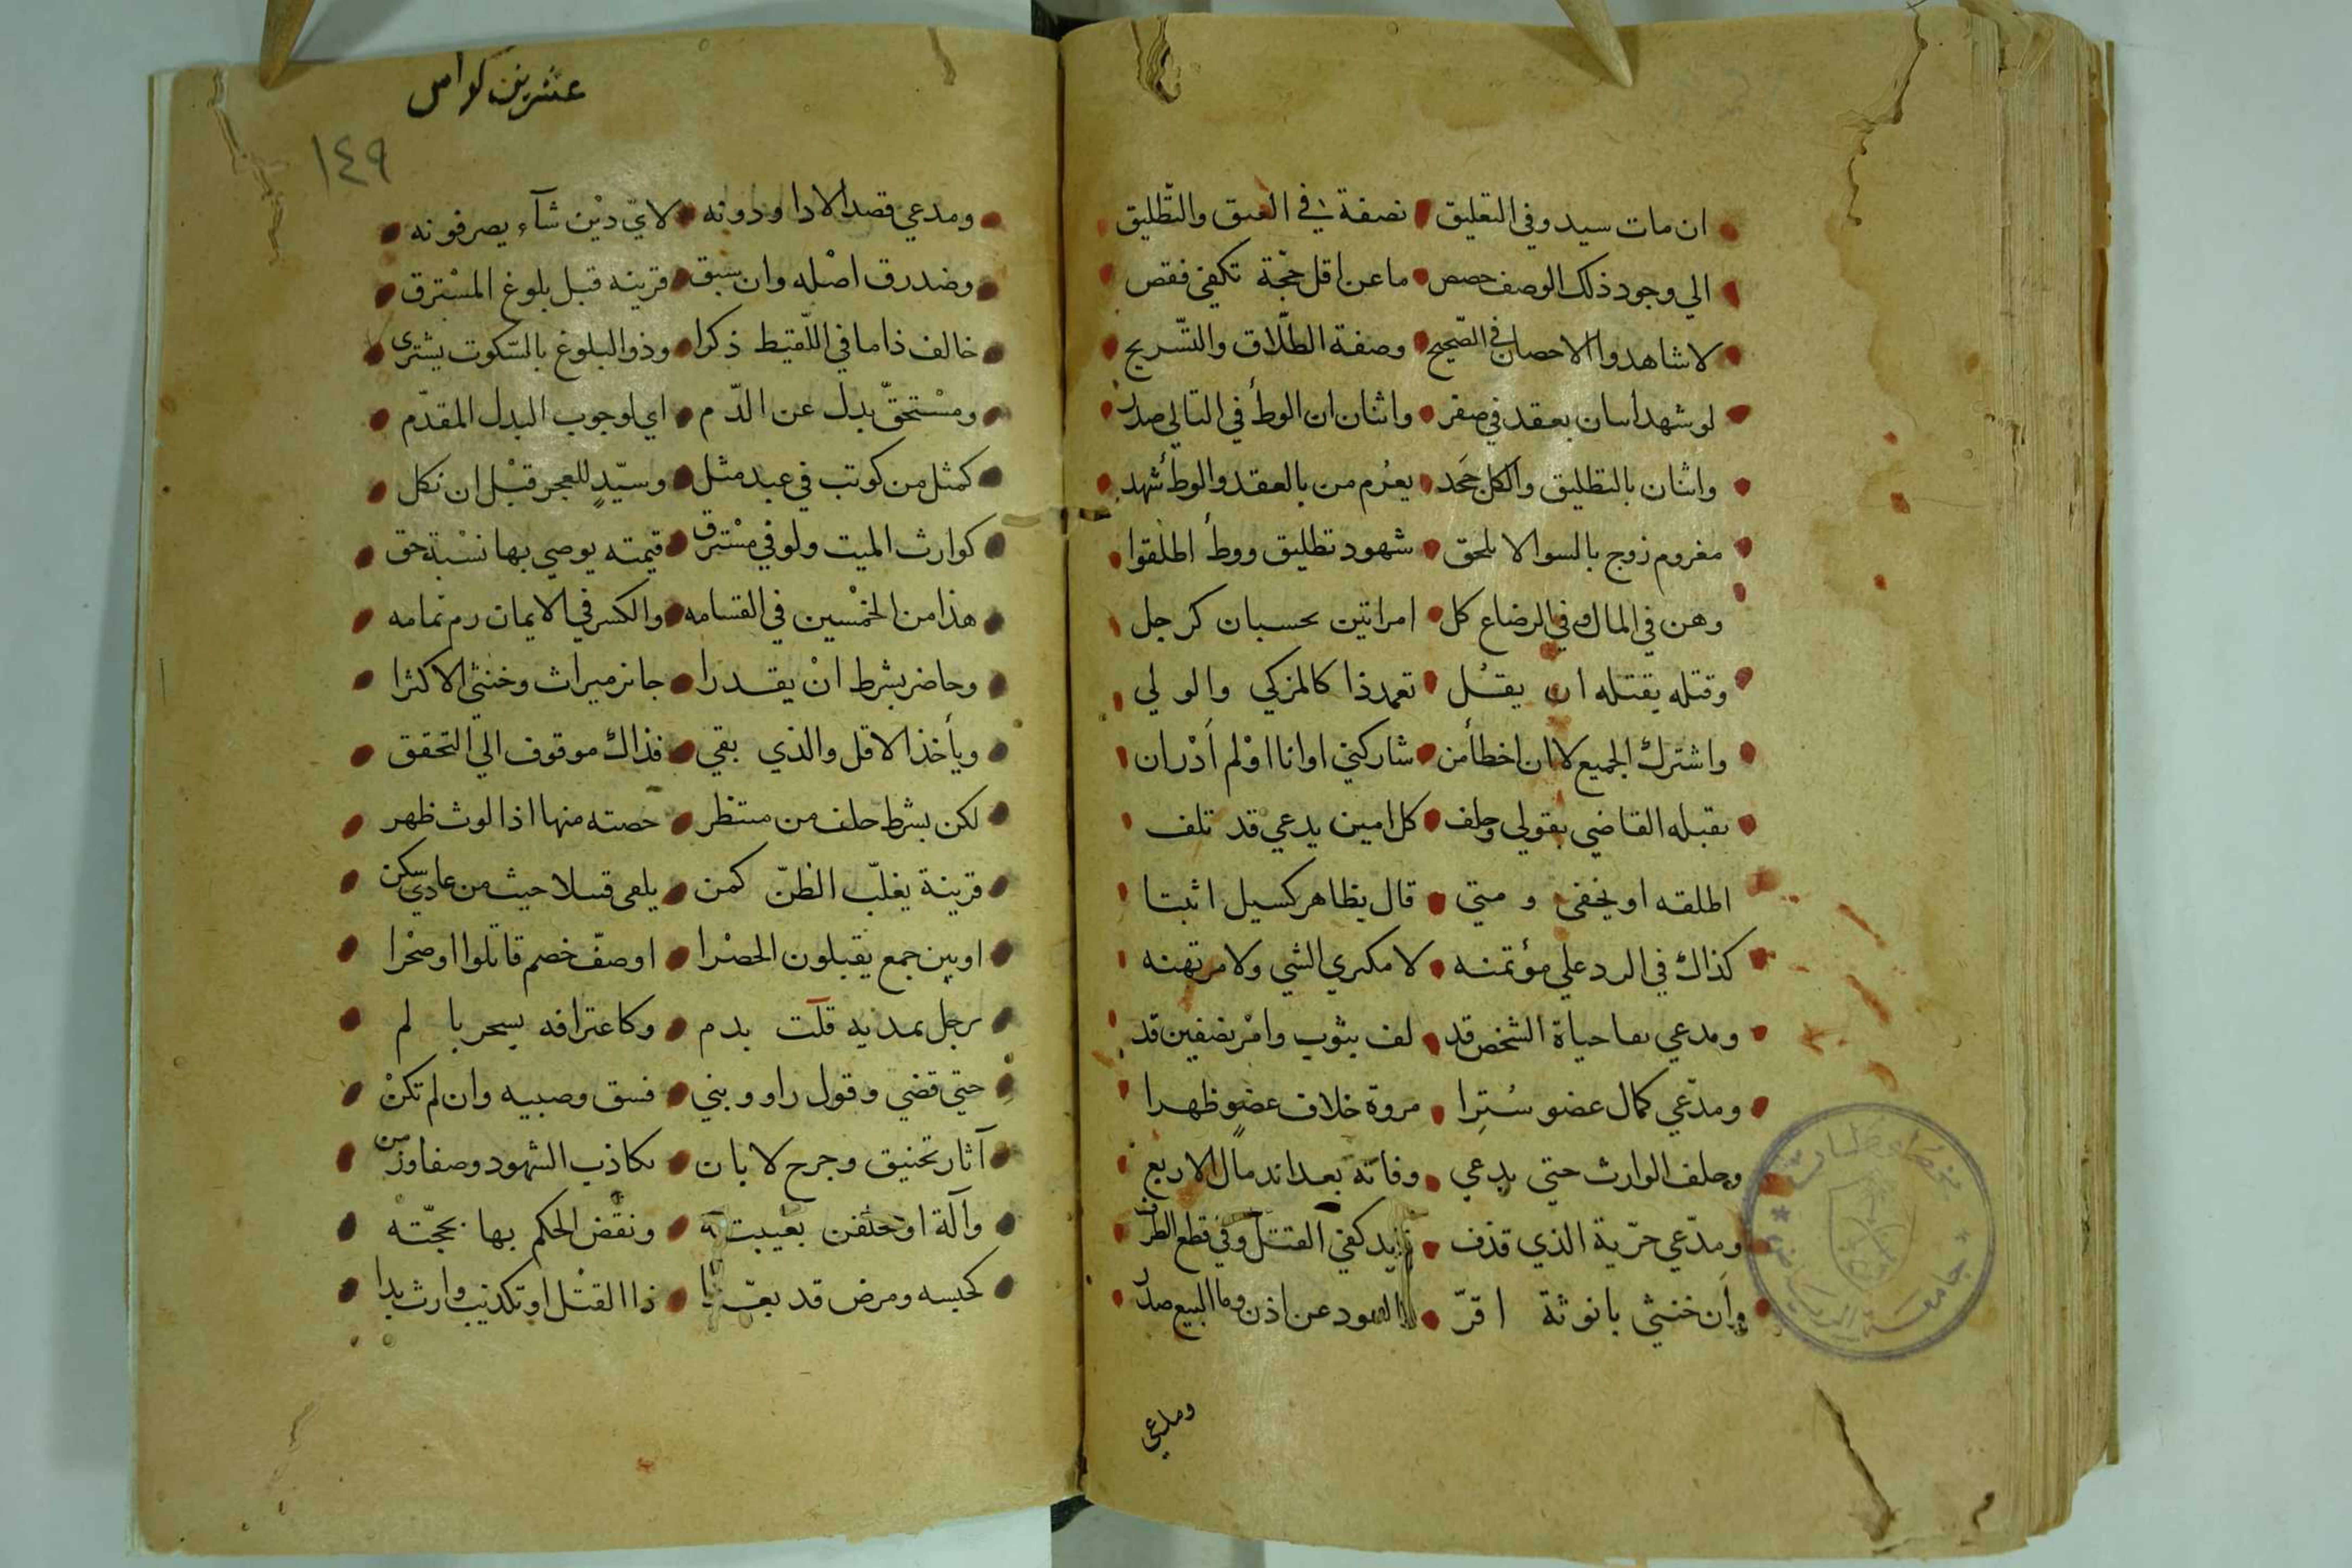 ان مات سيد وفي التعليق نصفة في العتق والتطليق
الي وجود ذلك الوصف حصص ما عن اقل حجّة تكفي فقص
لا شاهدوا الاحصان في الصّحيح وصفة الطّلاق والتّسريح
لو شهد اسان بعقد في صفر واثنان ان الوطأ في التالي صدر
واثنان بالتطليق والكل جَحَد يغرم من بالعقد والوطأ شهد
مغروم زوج بالسوا لا يلحق شهود تطليق ووطأ اطلقوا
وهن في المال وفي الرضاع كل امراتين بحسبان كرجل
وقتله يقتله ان يقـُل تعمد ذا كالمزكي والولي
واشترك الجميع لا ان اخطأ من شاركني او انا اوْلم أدْر ان
يقبله القاضي بقولي وحلف كل امين يدعي قد تلف
اطلقه او يخفى ومتي قال بظاهر كسيل اثبتا
كذاك في الرد علي مؤتمنه لا مكتري الشي ولا مرتهنه
ومدعي بقا حياة الشخص قد لف بثوب وامْر بنصفين قد
ومدّعي كمال عضو سُتِرا مروة خلاف عضوٍ ظهرا
وحلف الوارث حتي يدعي وفاته بعد اندمال الاربع
ومدّعي حرّية الذي قذف زيد كفي القتل وفي قطع الطرف
وان خنثي بانوثة اقرّ العود عن اذن وما البيع صدر
ومدعي
عشرين كراس
١٤٩
ومدعي قصد الادا ودونه لايّ ديْن شآء يصرفونه
وضد رق اصْله وان سبق قرينه قبل بلوغ المسْترق
خالف ذا ما في اللّقيط ذكرا وذو البلوغ بالسّكوت يشترى
ومسْتحقّ بدل عن الدّم اي لوجوب البدل المقدّم
كمثل من كوتب في عبد مثل وسيّدٍ للعجز قبْل ان نكل
كوارث الميت ولو في مسْترق قيمته يوصي بها نسْبة حق
هذا من الخمْسين في القسامه والكسر في الايمان رم تمامه
وحاضر بشرط انْ يقدرا جائز ميراث وخنثي الاكثرا
ويأخذ الاقل والذي بقي فذاك موقوف الي التحقق
لكن بشرط حلف من منتظر حصته منها اذا لوث ظهر
قرينة يغلّب الظنّ كمن يلفى قتيلا حيث من عادي سكن
او بين جمع يقبلون الحصْرا او صفّ خصم قاتلوا او صحْرا
برجل بمديه قلت بدم وكاعترافه بسحر با لم
حتي قضي وقول راو وبني فسق وصبيه وان لم تكنْ
آثار تخنيق وجرح لا بان بكاذب الشهود وصفا وزمن
وآلة او حلفن بغيبته ونقْض الحكم بها بحجّته
كحبسه ومرض قد بعّدا ذا القتْل او تكذيب وارث بدا